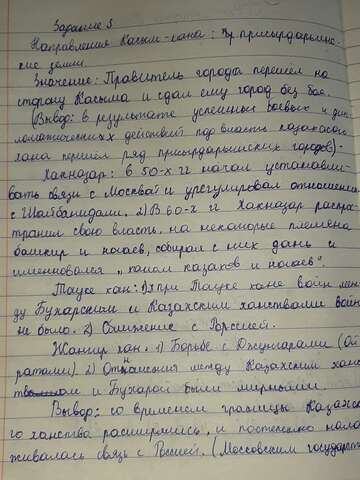 Задание 5
Направления Касым-хана: Пр присырдарьинс-
кие земли
Значение: Правитель города перешёл на
сторону Касыма и сдал ему город без боя.
(Вывод: в результате успешных боевых и дип
ломатических действий под власть казахского
хана перешёл ряд присырдарьинских городов).
Хакназар: в 50-х гг начал устанавли-
вать связи с Москвой и урегулировал отношения
с Шайбанидами. 2) В 60-х гг Хакназар распрос
транил свою власть на некоторые племена
башкир и ногаев, собирал с них дань и
именовался "ханом казахов и ногаев".
Тауке хан: 1) при Тауке хане войн меж
ду Бухарским и Казахским ханствами войн
не было. 2) Сближение с Россией.
Жангир хан. 1) Борьба с Джунгарами (Ой
ратами) 2) Отношения между Казахским ханс
твом и Бухарой были мирными.
Вывод: со временем границы Казахско
го ханства расширились, и постепенно нала
живалась связь с Россией. (Московским государств